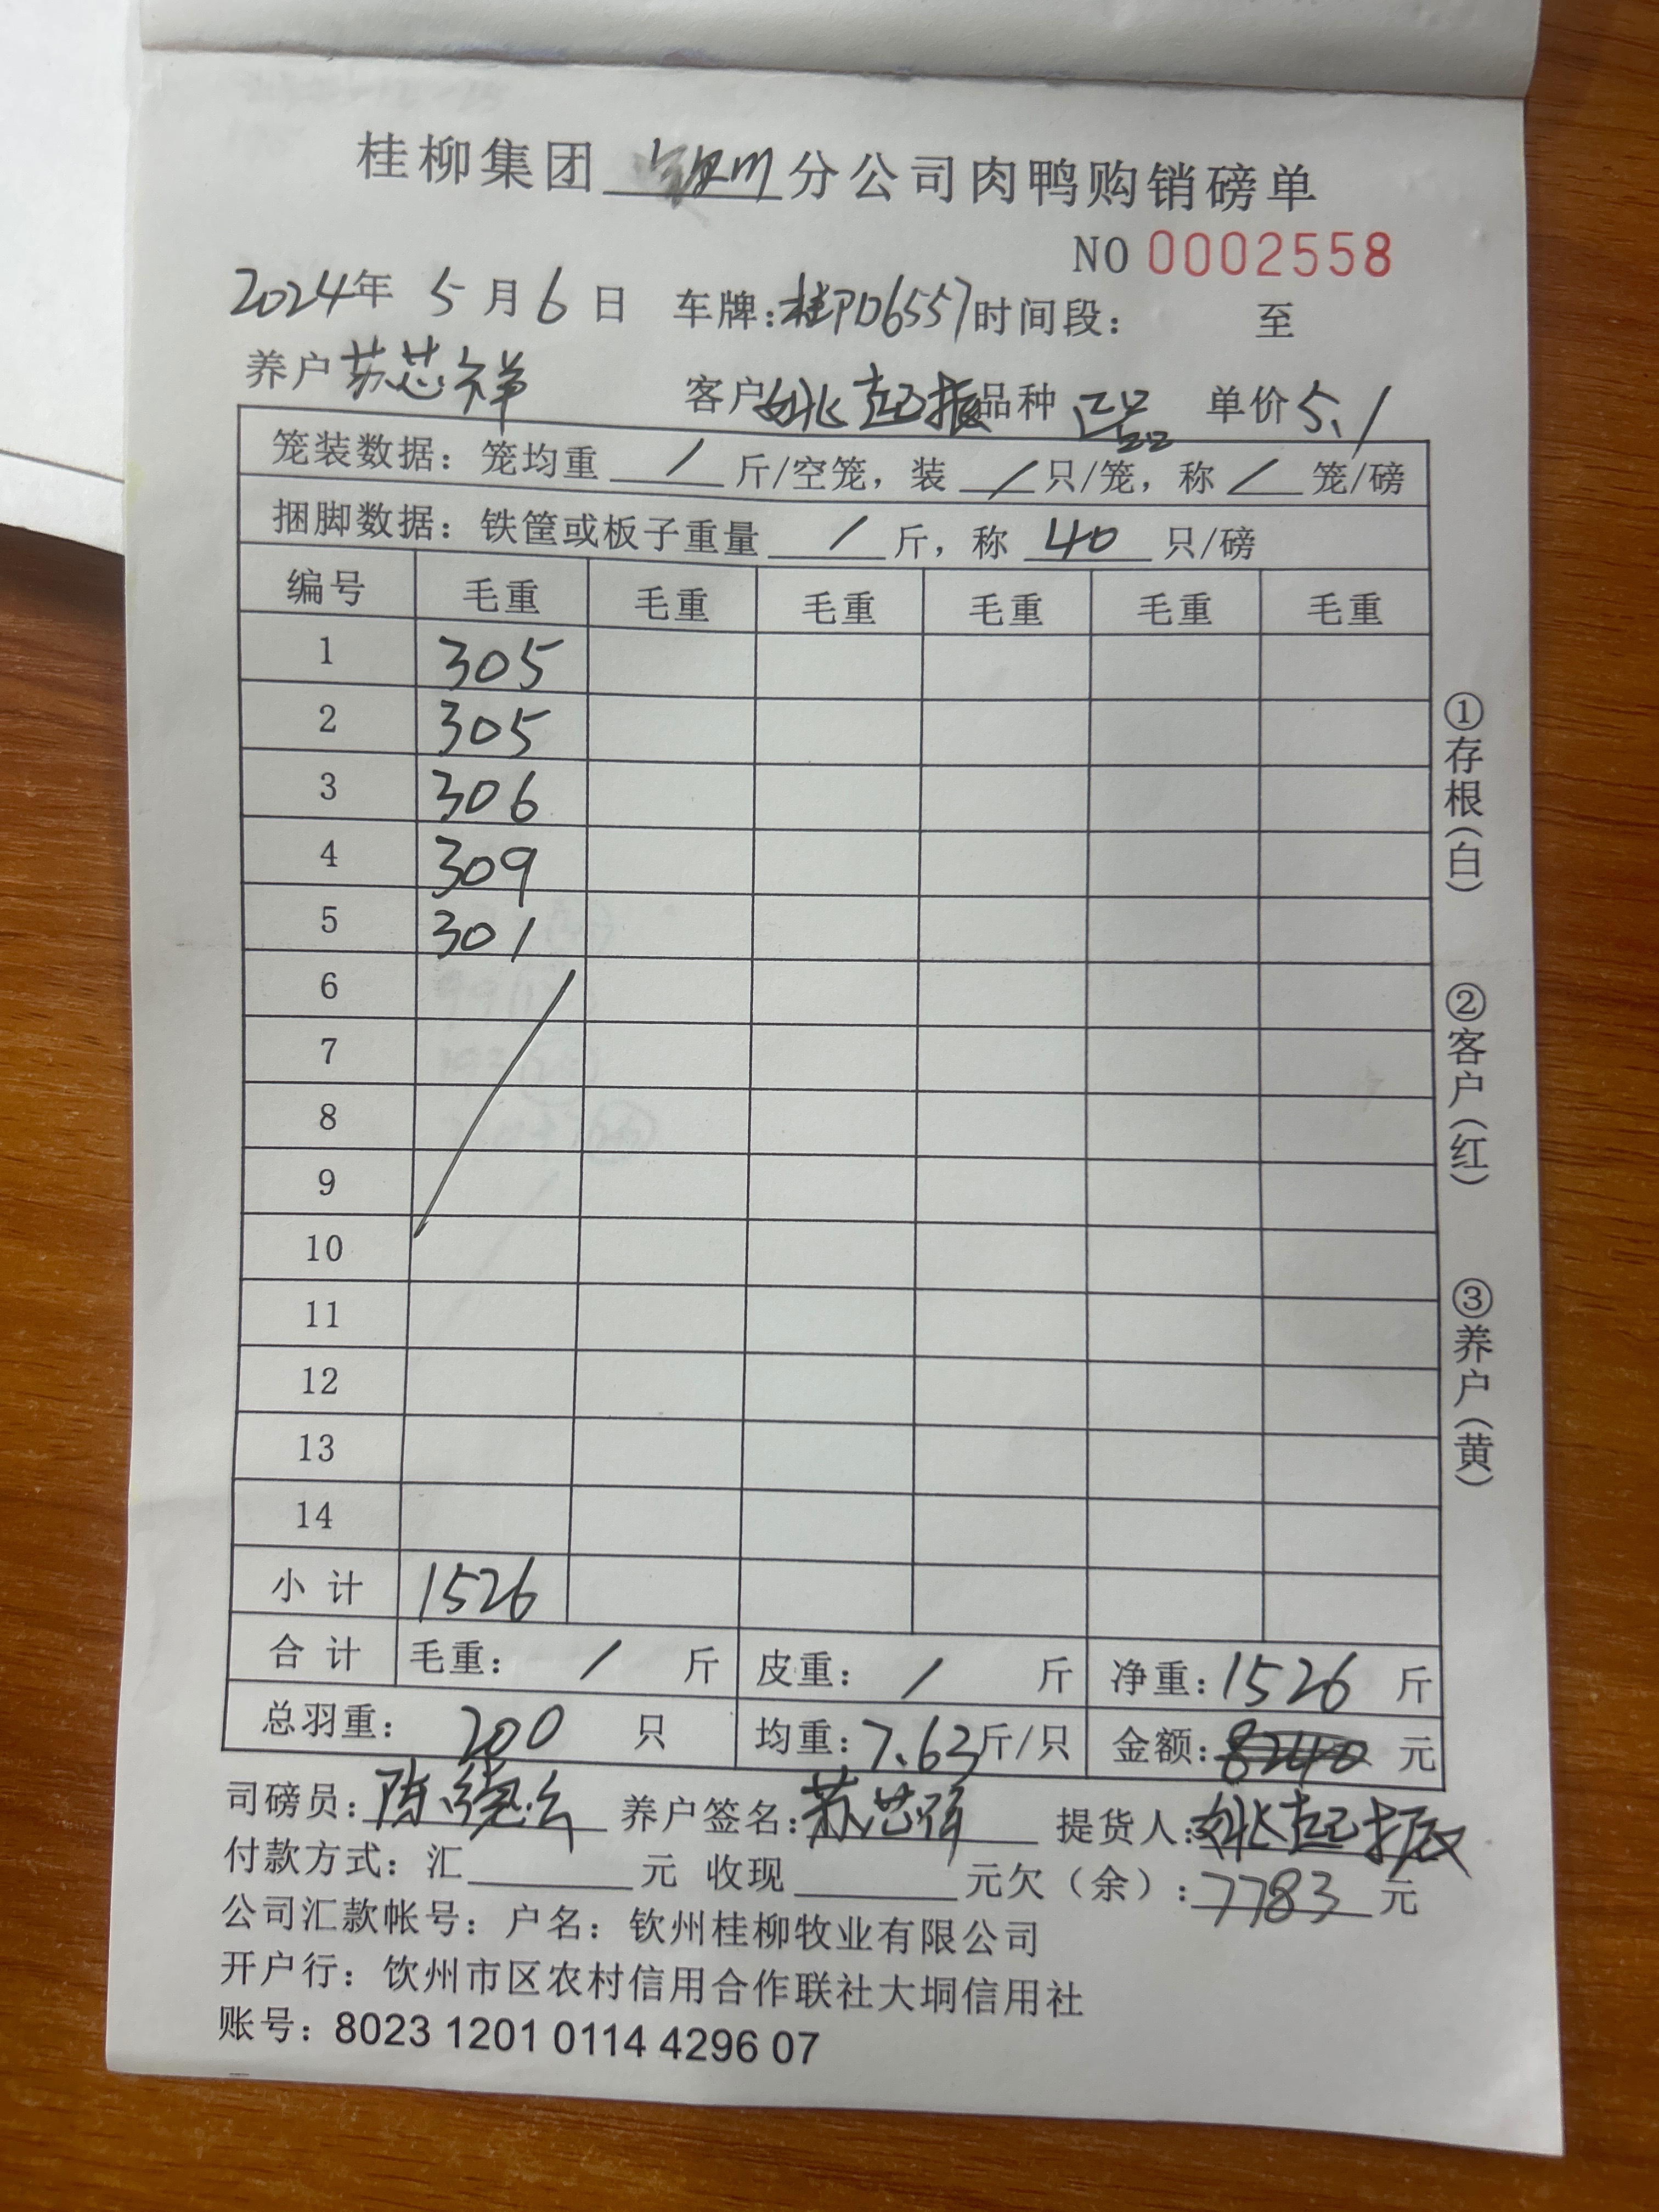 桂柳集团 钦州 分公司肉鸭购销磅单
NO 0002558
2024年 5 月 6 日 车牌:桂PD6557 时间段: 至
养户 苏芯祥 客户 姚起振 品种 正品 单价 5.1
笼装数据: 笼均重 / 斤/空笼, 装 / 只/笼, 称 / 笼/磅
捆脚数据: 铁筐或板子重量 / 斤, 称 40 只/磅
编号 毛重 毛重 毛重 毛重 毛重 毛重
1 305
2 305
3 306
4 309
5 301
6
7
8
9
10
11
12
13
14
小计 1526
合计 毛重: / 斤 皮重: / 斤 净重: 1526 斤
总羽重: 200 只 均重: 7.63 斤/只 金额: 8240 元
司磅员: 陈 养户签名: 苏芯祥 提货人: 姚起振
付款方式: 汇 元 收现 元欠(余): 7783 元
公司汇款帐号: 户名: 钦州桂柳牧业有限公司
开户行: 钦州市区农村信用合作联社大垌信用社
账号: 8023 1201 0114 4296 07
①存根(白)
②客户(红)
③养户(黄)